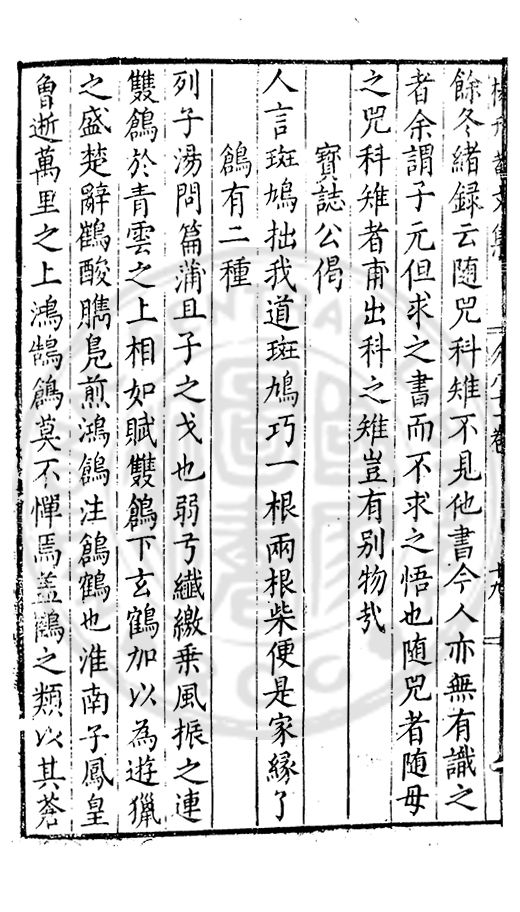 餘冬緒録云随兕科雉不見他書今人亦無有識之
者余謂子元但求之書而不求之悟也随兕者随母
之兕科雉者甫出科之雉豈有别物㢤
寳誌公偈
人言斑鳩拙我道斑鳩巧一根兩根柴便是家縁了
鶬有二種
列子湯問篇蒲且子之弋也弱弓纎繳乗風振之連
雙鶬於青雲之上相如賦雙鶬下玄鶴加以為遊獵
之盛楚辭鶴酸臇鳧煎鴻鶬注鶬鶴也淮南子鳳皇
曾逝萬里之上鴻鵠鶬莫不憚焉盖鶴之類以其蒼